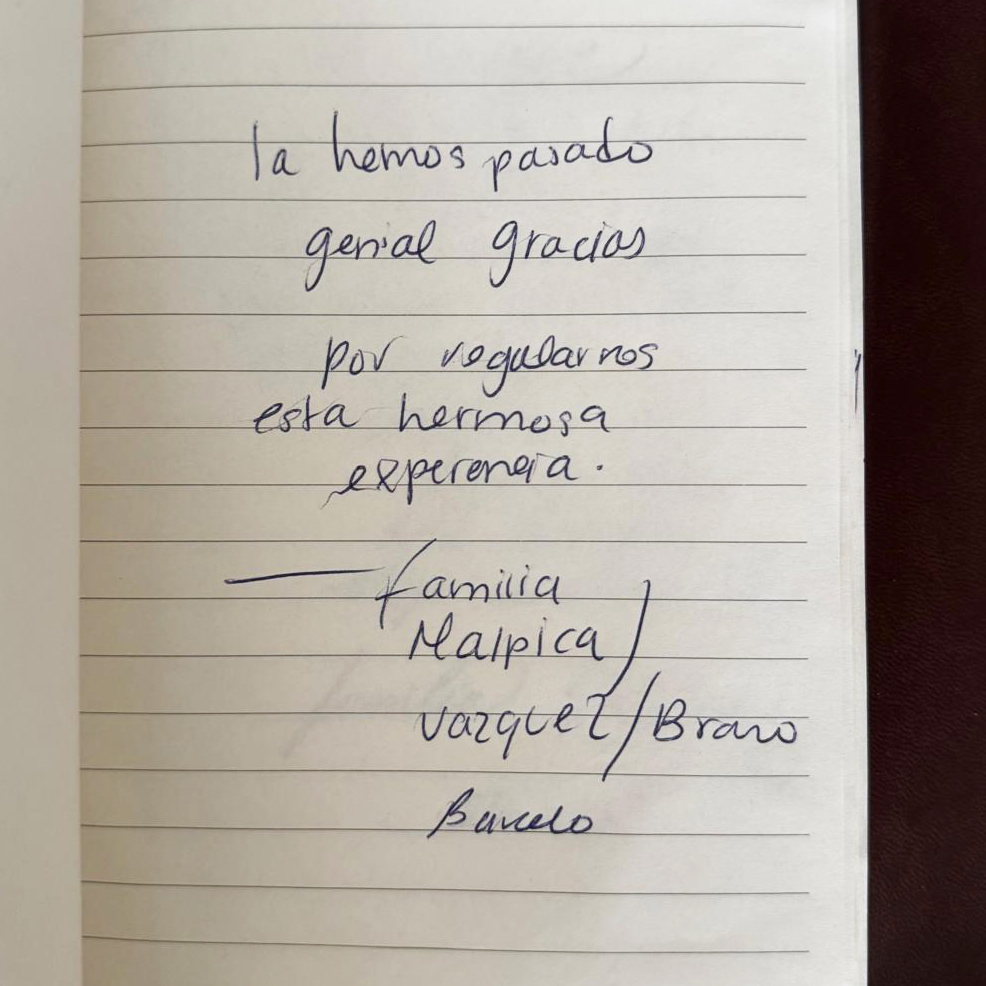 la hemos pasado
genial gracias
por regalarnos
esta hermosa
experencia.
— familia
Malpica /
vazquez / Bravo
Barcelo